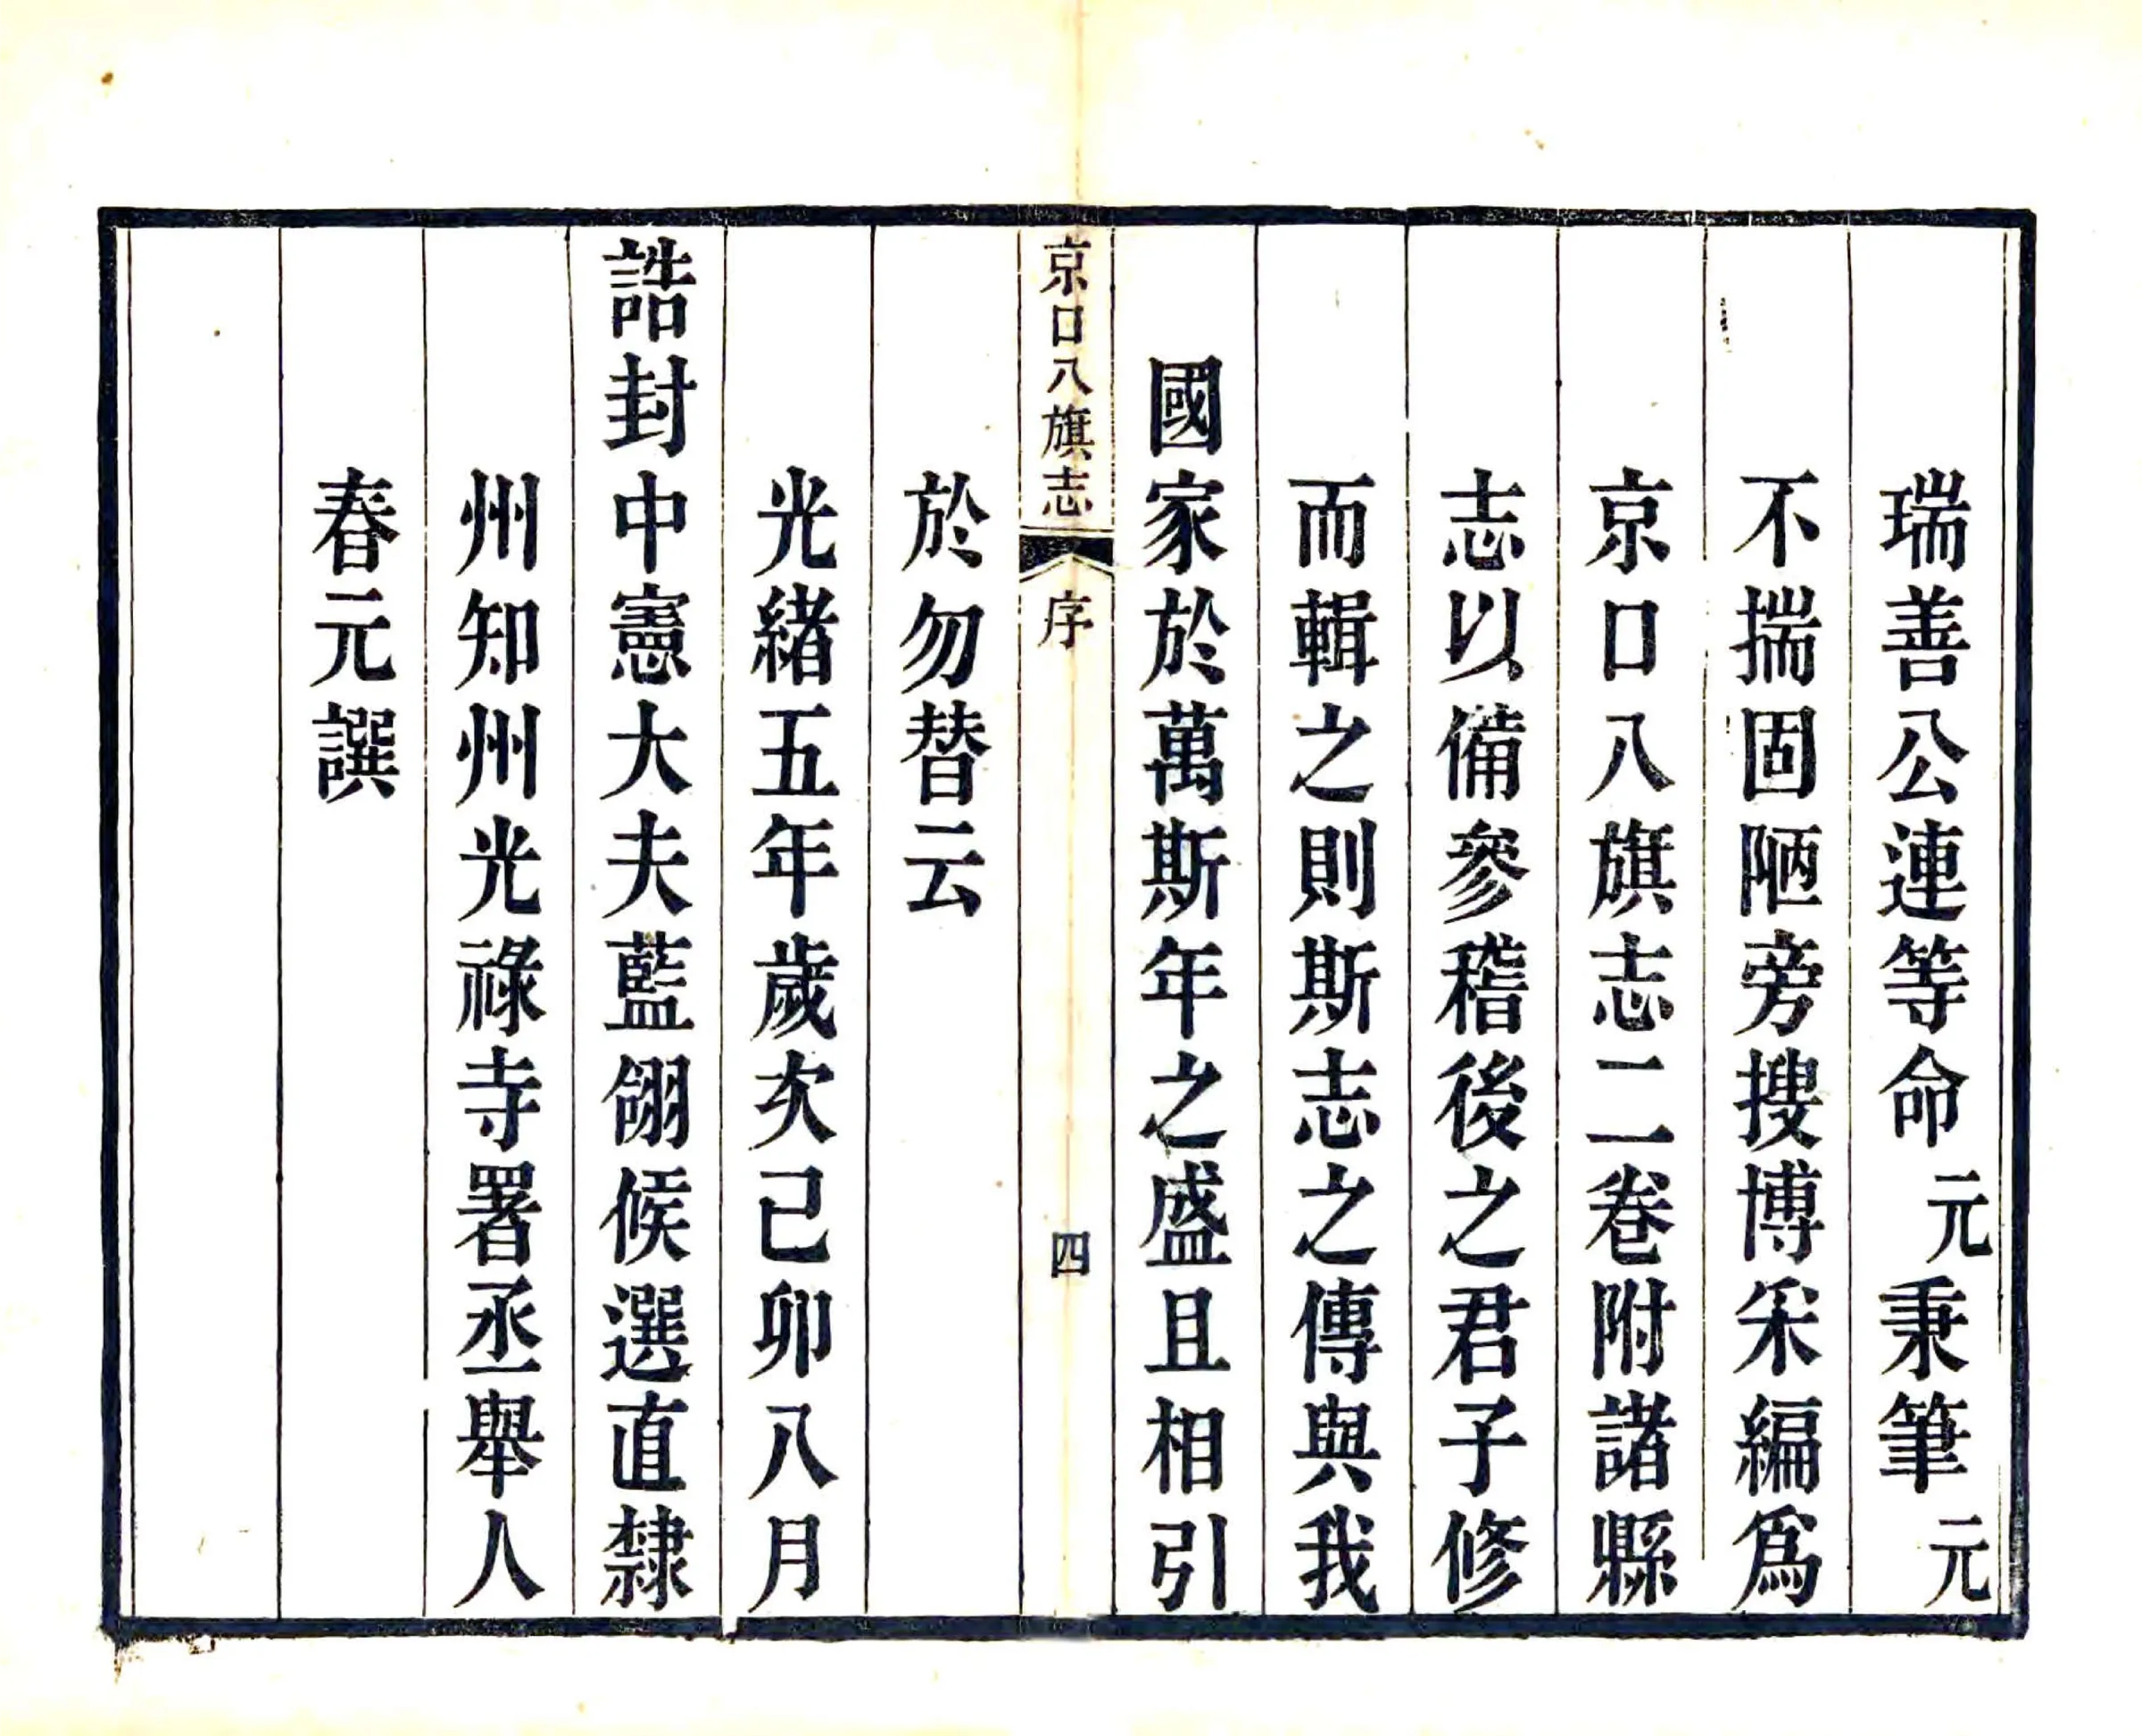 瑞善公連等命元秉筆元
不揣固陋旁搜博采編爲
京口八旗志二卷附諸縣
志以備參稽後之君子修
而輯之則斯志之傳與我
國家於萬斯年之盛且相引
京口八旗志
序
四
於勿替云
光緒五年歲次己卯八月
誥封中憲大夫藍翎候選直隸
州知州光祿寺署丞舉人
春元譔